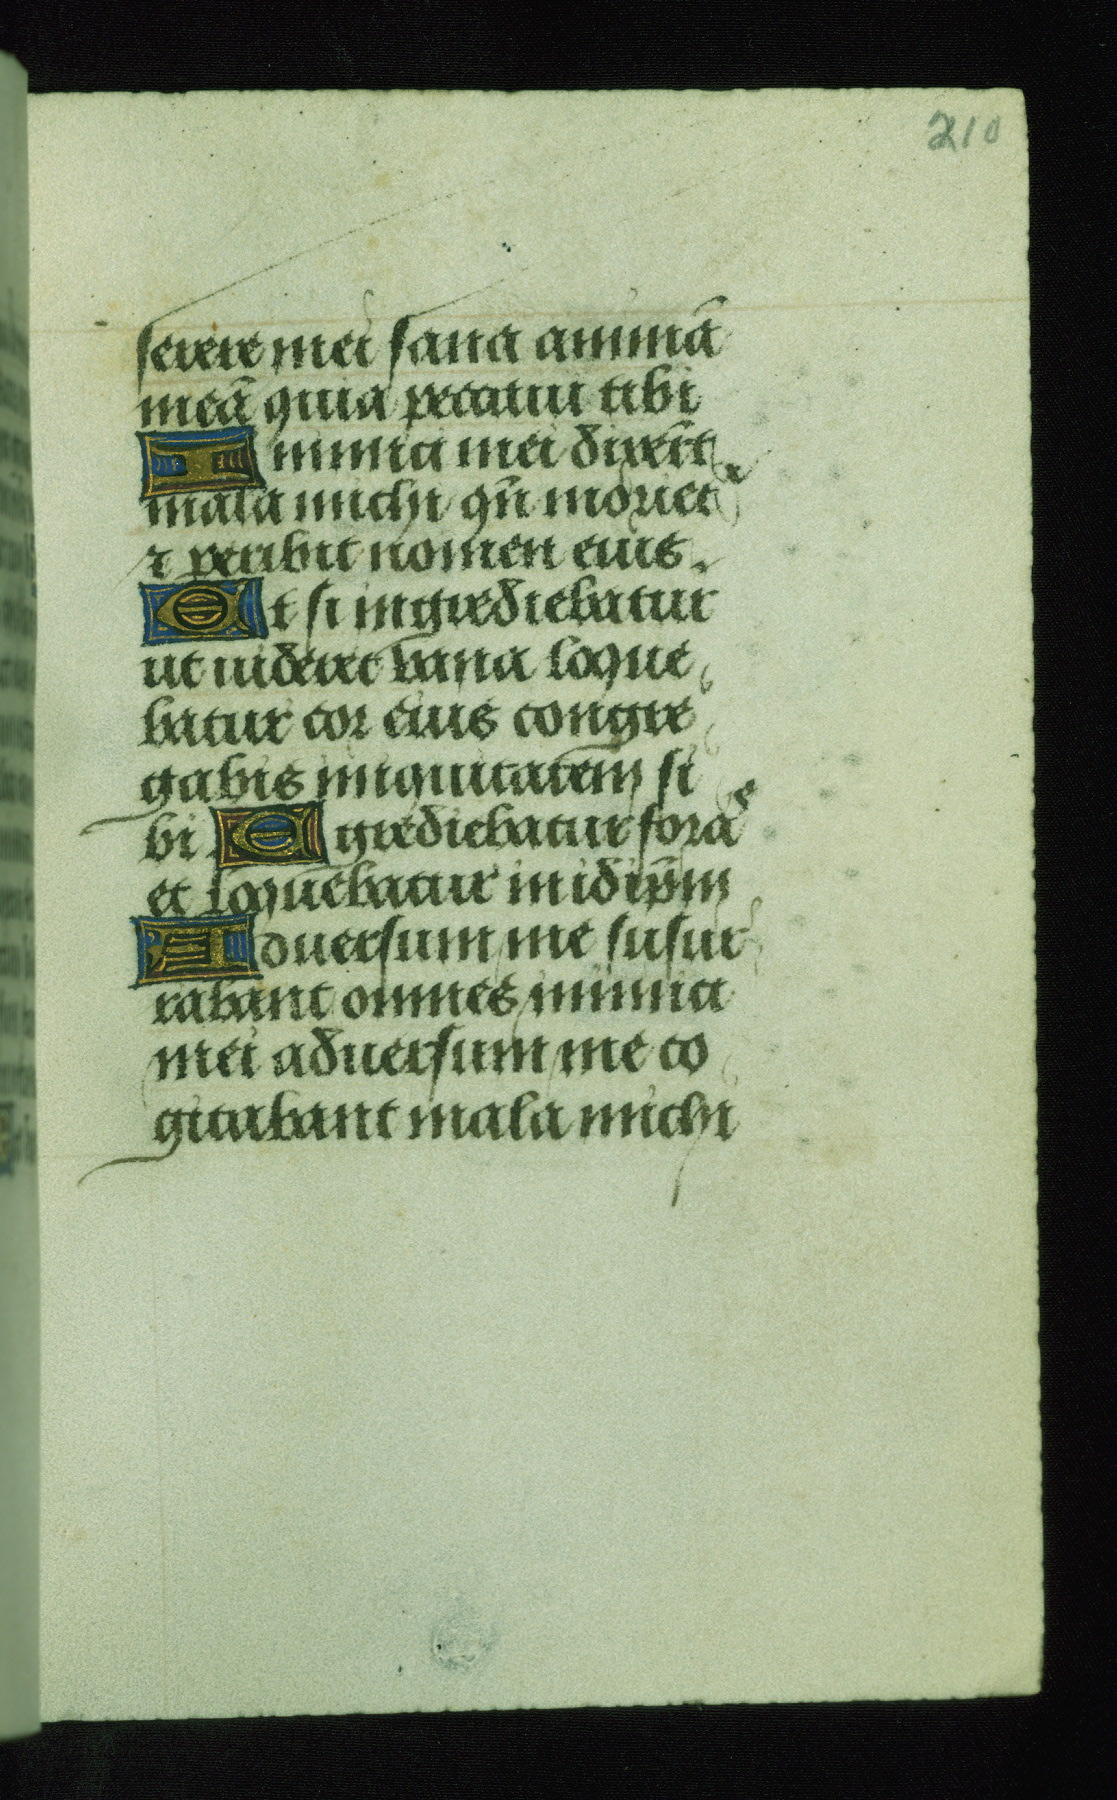 210
serere mei sana animā
meā quia peccaui tibi
Inimici mei dixer̄t
mala michi qn̄ moriet᷑
⁊ peribit nomen eius.
Et si ingrediebatur
ut uideret vana loque
batur cor eius congre
gabis iniquitatem si
bi. Egrediebatur foras
et loquebatur in idip̄m
Aduersum me susur
rabant omnes inimici
mei aduersum me co
gitabant mala michi